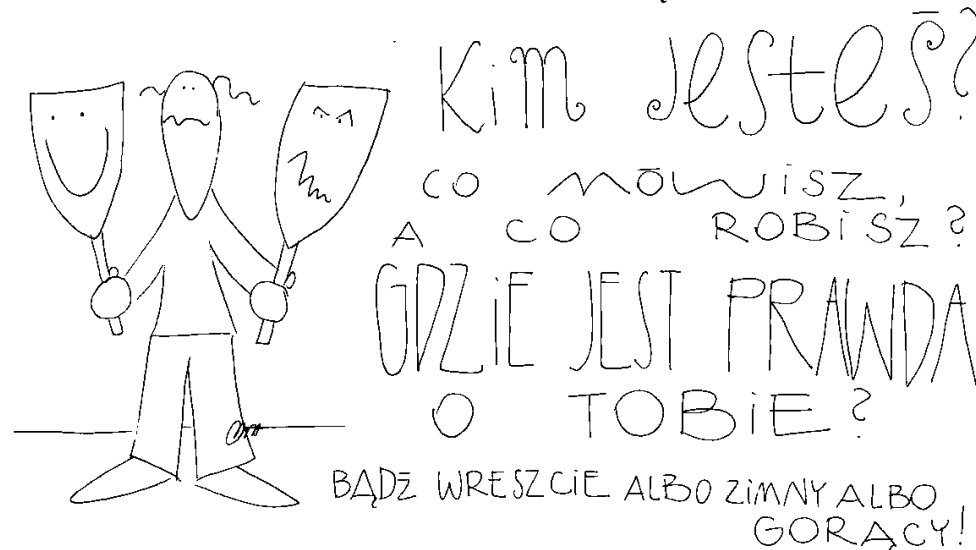 Kim jesteś?
CO MÓWISZ,
A CO ROBISZ?
GDZIE JEST PRAWDA
O TOBIE?
BĄDŹ WRESZCIE ALBO ZIMNY ALBO
GORĄCY!